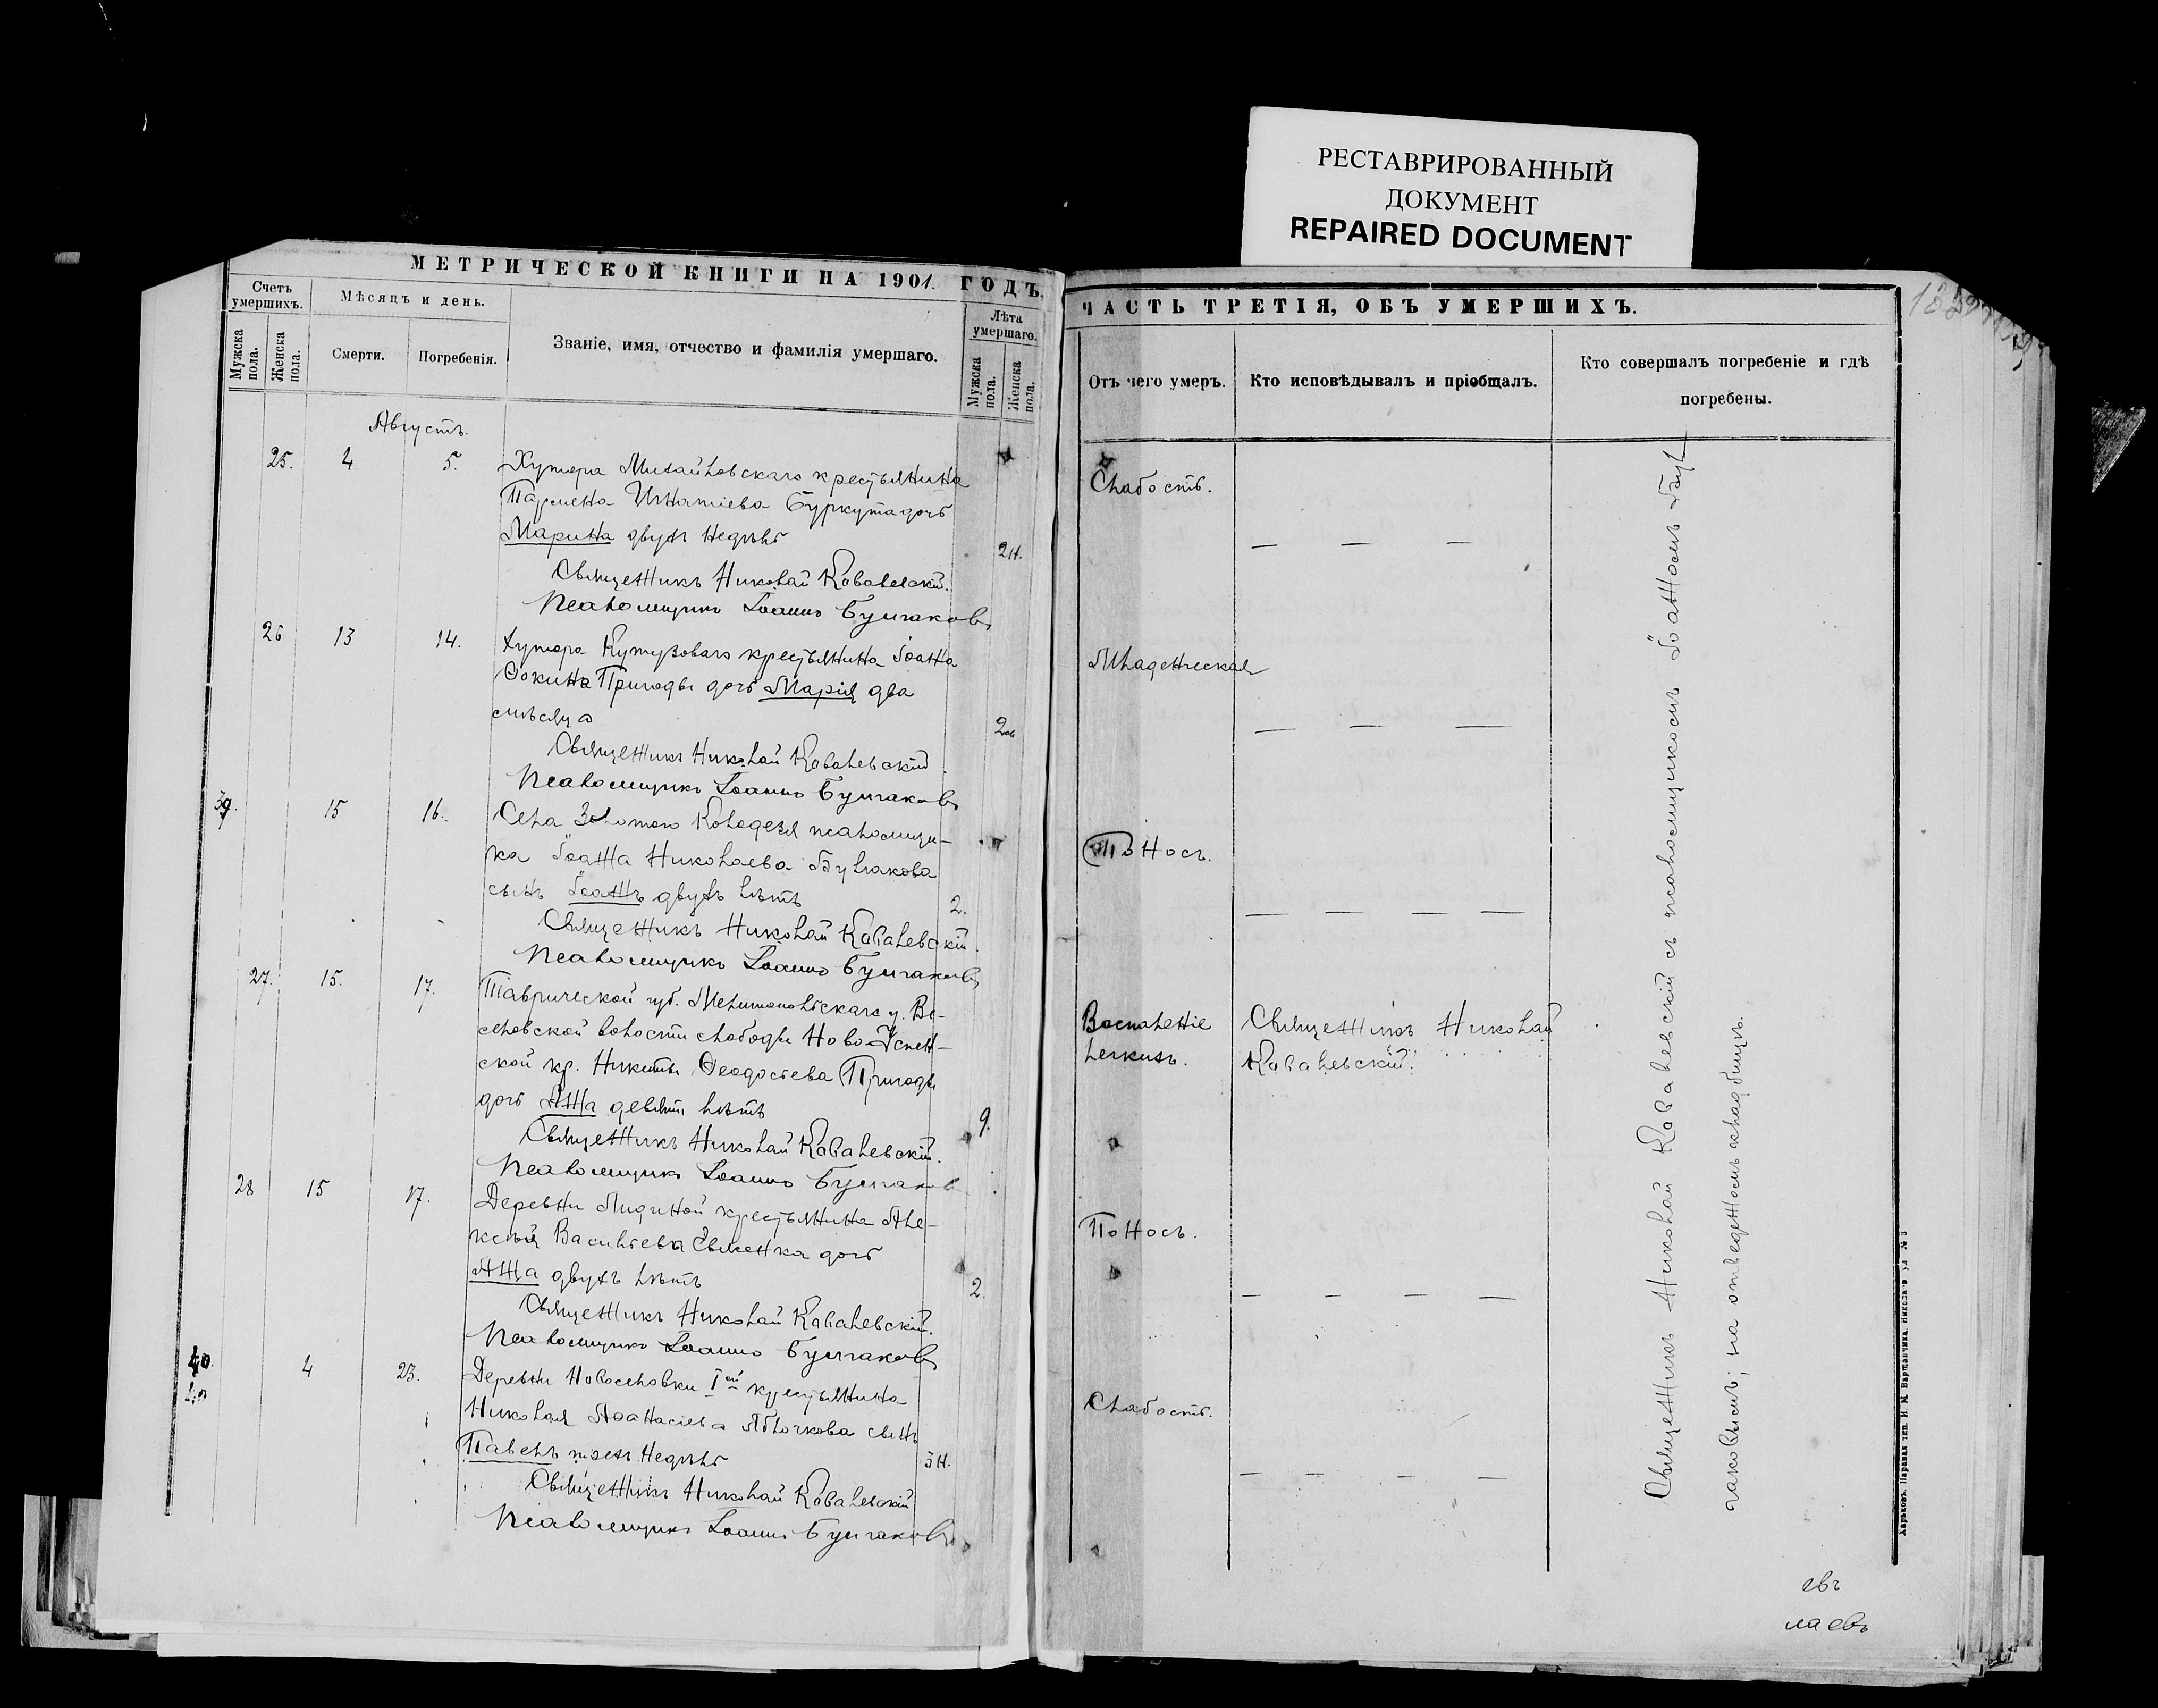 РЕСТАВРИРОВАННЫЙ
ДОКУМЕНТ
REPAIRED DOCUMENT
МЕТРИЧЕСКОЙ КНИГИ НА 1901. ГОДЪ.
Счетъ умершихъ.
Мужска пола.
Женска пола.
Мѣсяцъ и день.
Смерти.
Погребенія.
Званіе, имя, отчество и фамилія умершаго.
Лѣта умершаго.
Мужска пола.
Женска пола.
ЧАСТЬ ТРЕТІЯ, ОБЪ УМЕРШИХЪ.
Отъ чего умеръ.
Кто исповѣдывалъ и пріобщалъ.
Кто совершалъ погребеніе и гдѣ
погребены.
Августъ.
25. 4 5. Хутора Михайловскаго крестьянина
Пармена Игнатіева Буркута дочь
Марина двухъ недѣль 2н.
Слабость.
Священникъ Николай Ковалевскій.
Псаломщикъ Іоаннъ Булгаковъ
26 13 14. Хутора Кутузоваго крестьянина Іоанна
Фокина Пригоды дочь Марія два
мѣсяца 2м
Младенческая
Священникъ Николай Ковалевскій.
Псаломщикъ Іоаннъ Булгаковъ
39. 15 16. Села Золотого Колодезя псаломщи-
ка Іоанна Николаева Булгакова
сынъ Іоаннъ двухъ лѣтъ 2.
Поносъ.
Священникъ Николай Ковалевскій.
Псаломщикъ Іоаннъ Булгаковъ
27. 15. 17. Таврической губ. Мелитопольскаго у. Ве-
селовской волости слободы Ново-Успен-
ской кр. Никиты Феодосіева Пригоды
дочь Анна девяти лѣтъ 9.
Воспаленіе
легкихъ.
Священникъ Николай
Ковалевскій.
Священникъ Николай Ковалевскій.
Псаломщикъ Іоаннъ Булгаковъ
28 15 17. Деревни Лидиной крестьянина Але-
ксія Васильева дочь
Анна двухъ лѣтъ 2.
Поносъ.
Священникъ Николай Ковалевскій.
Псаломщикъ Іоаннъ Булгаковъ
40. 4 23. Деревни Новоселовки Iой крестьянина
Николая Афанасіева Яблочкова сынъ
Павелъ трехъ недѣль 3н.
Слабость.
Священникъ Николай Ковалевскій
Псаломщикъ Іоаннъ Булгаковъ
Священникъ Николай Ковалевскій съ псаломщикомъ Іоанномъ Бул-
гаковымъ; на отведенномъ кладбищѣ.